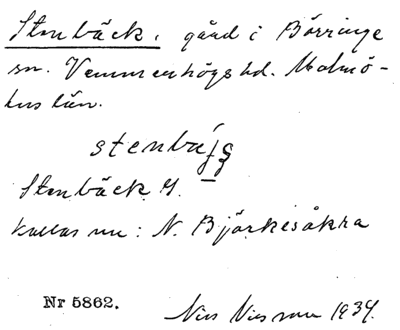 Stenbäck, gård i Börringe
sn. Vemmenhögs hd. Malmö-
hus län.
stenbag
Stenbäck G.
kallas nu: N. Björkesåkra
Nr 5862.
Nils Nilsson 1934.